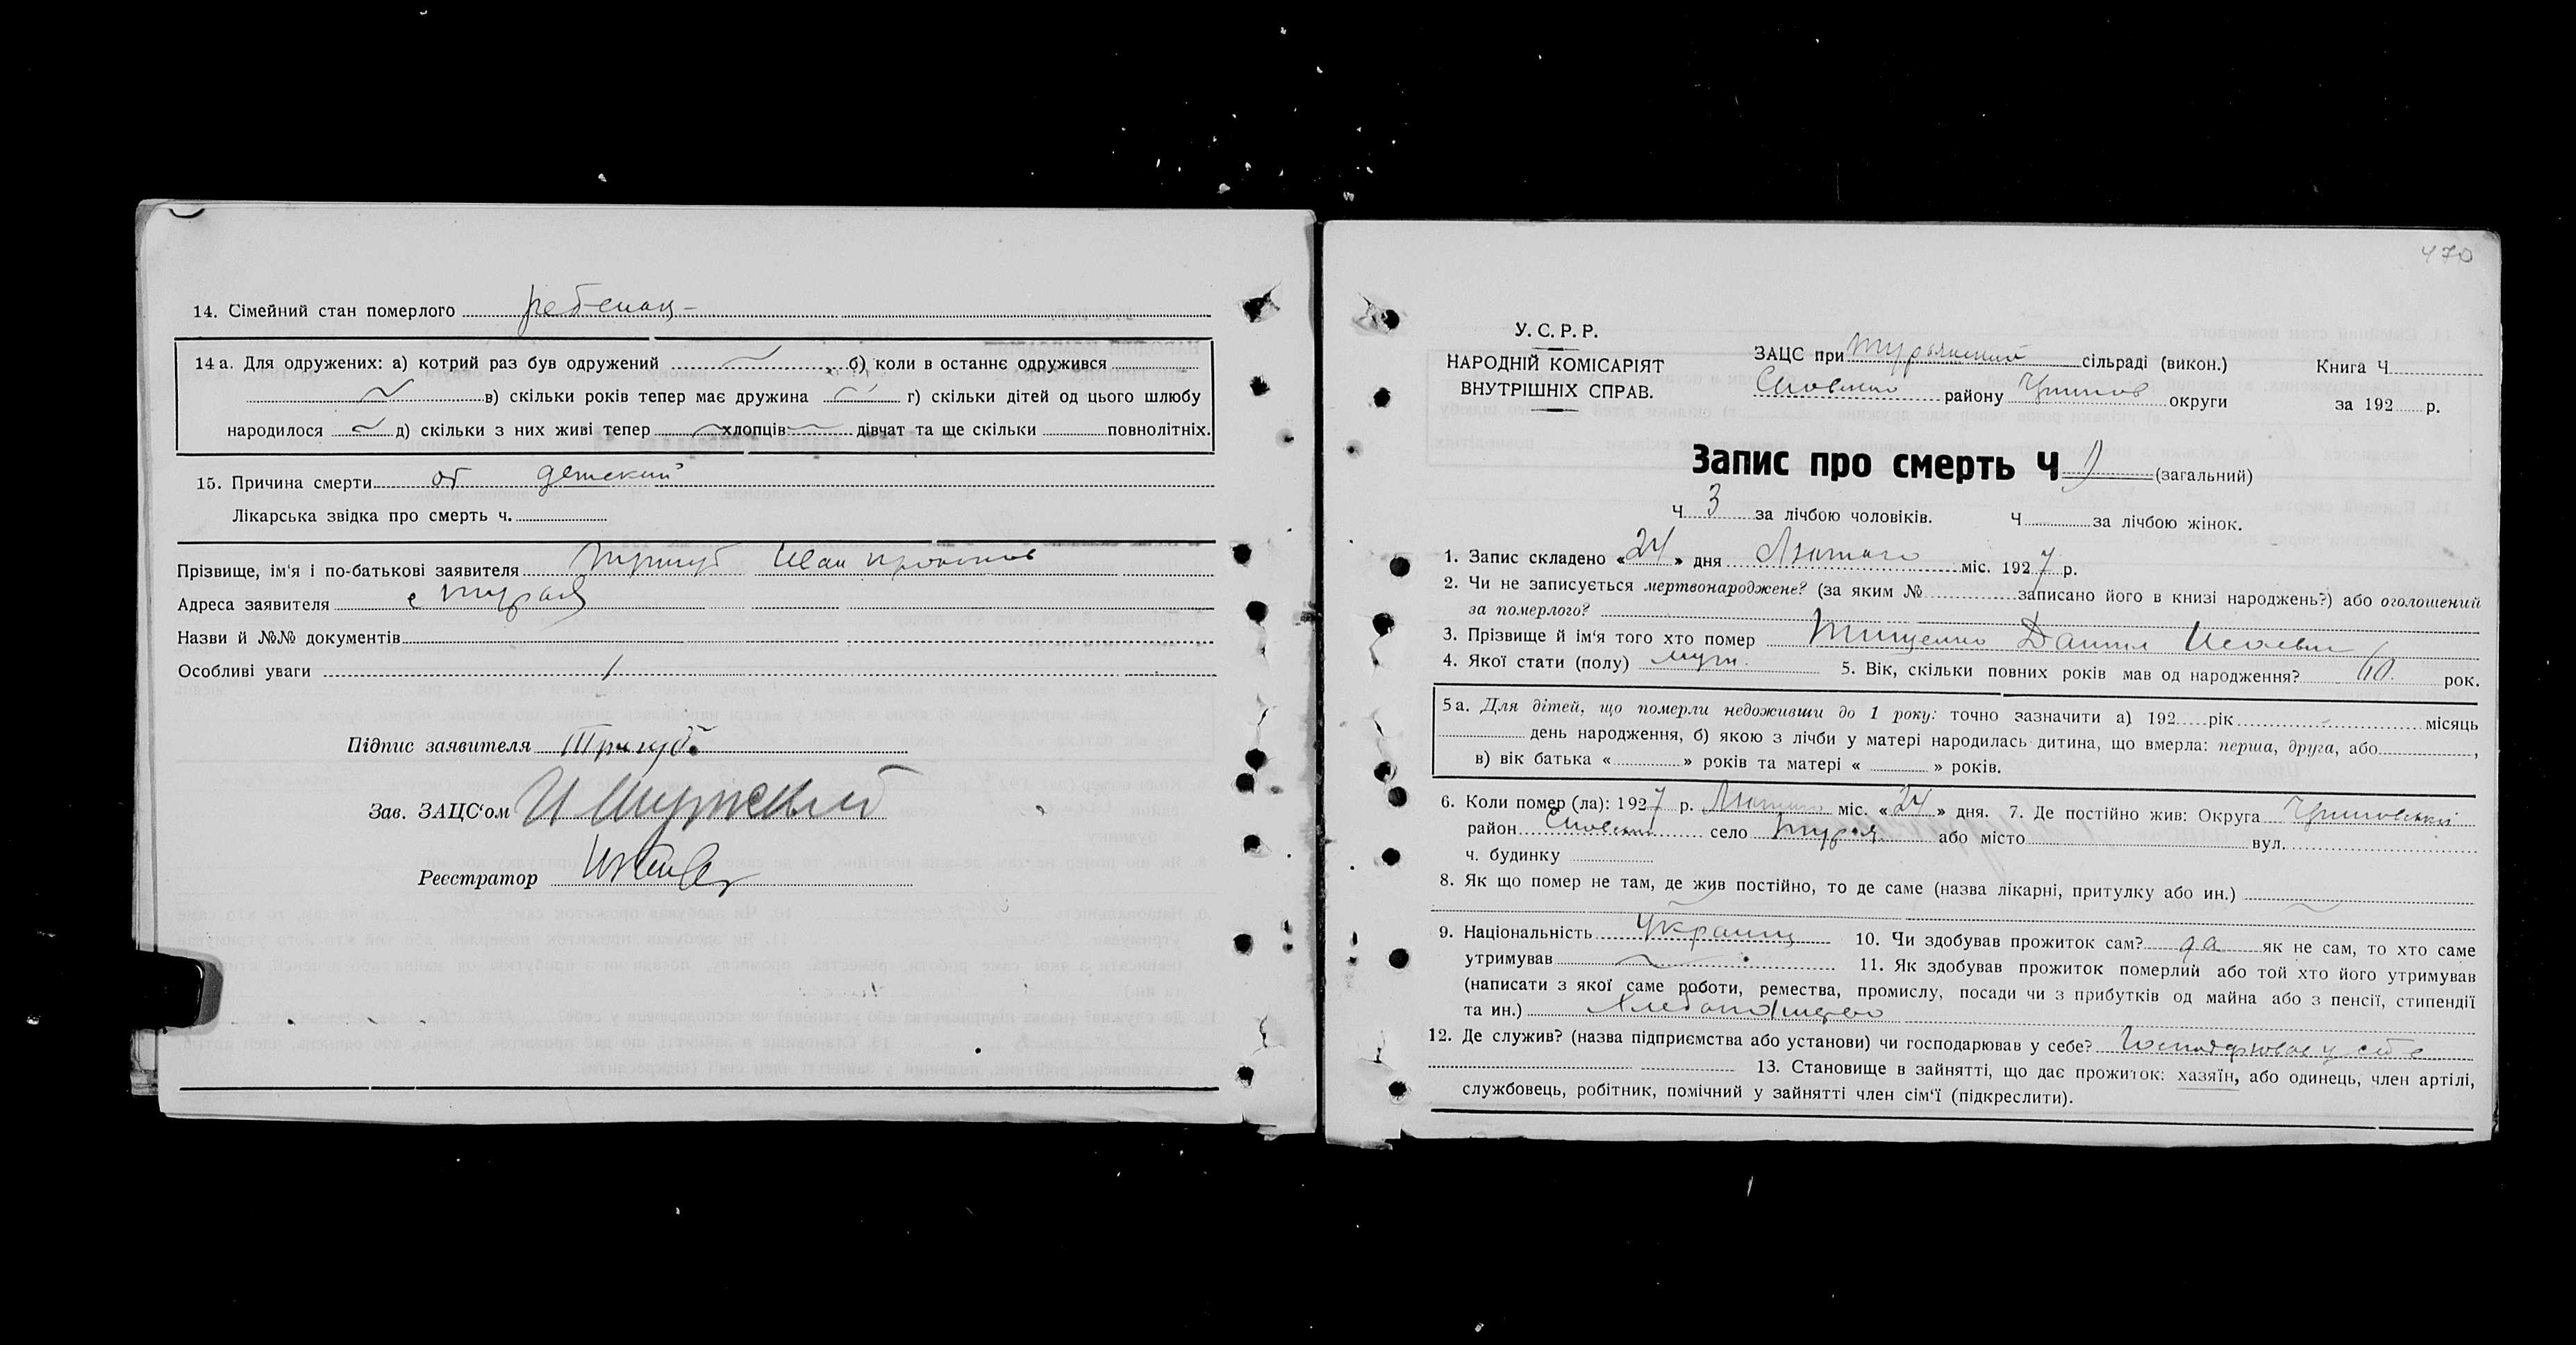 14. Сімейний стан померлого
14 а. Для одружених: а) котрий раз був одружений б) коли в останнє одружився
в) скільки років тепер має дружина г) скільки дітей од цього шлюбу
народилося д) скільки з них живі тепер хлопців дівчат та ще скільки повнолітніх.
15. Причина смерти от детский
Лікарська звідка про смерть ч.
Прізвище, ім'я і по-батькові заявителя Тригуб Иван
Адреса заявителя с Турья
Назви й №№ документів
Особливі уваги
Підпис заявителя Тригуб
Зав. ЗАЦС'ом
Реєстратор
470
У. С. Р. Р.
НАРОДНІЙ КОМІСАРІЯТ
ВНУТРІШНІХ СПРАВ.
ЗАЦС при Турянский сільраді (викон.)
Сновско району округи
Книга Ч
за 192 р.
Запис про смерть Ч (загальний)
Ч 3 за лічбою чоловіків. Ч за лічбою жінок.
1. Запис складено «24» дня Лютого міс. 1927 р.
2. Чи не записується мертвонароджене? (за яким № записано його в книзі народжень?) або оголошений
за померлого?
3. Прізвище й ім'я того хто помер Тищенко Данил
4. Якої стати (полу) муж. 5. Вік, скільки повних років мав од народження? 60 рок.
5 а. Для дітей, що померли недоживши до 1 року: точно зазначити а) 192 рік місяць
день народження, б) якою з лічби у матері народилась дитина, що вмерла: перша, друга, або ,
в) вік батька « » років та матері « » років.
6. Коли помер (ла): 1927 р. Лютого міс. «24» дня. 7. Де постійно жив: Округа
район Сновский село Туря або місто вул.
ч. будинку
8. Як що помер не там, де жив постійно, то де саме (назва лікарні, притулку або ин.)
9. Національність Украинц 10. Чи здобував прожиток сам? да як не сам, то хто саме
утримував 11. Як здобував прожиток померлий або той хто його утримував
(написати з якої саме роботи, ремества, промислу, посади чи з прибутків од майна або з пенсії, стипендії
та ин.)
12. Де служив? (назва підприємства або установи) чи господарював у себе?
13. Становище в зайнятті, що дає прожиток: хазяїн, або одинець, член артілі,
службовець, робітник, помічний у зайнятті член сім'ї (підкреслити).